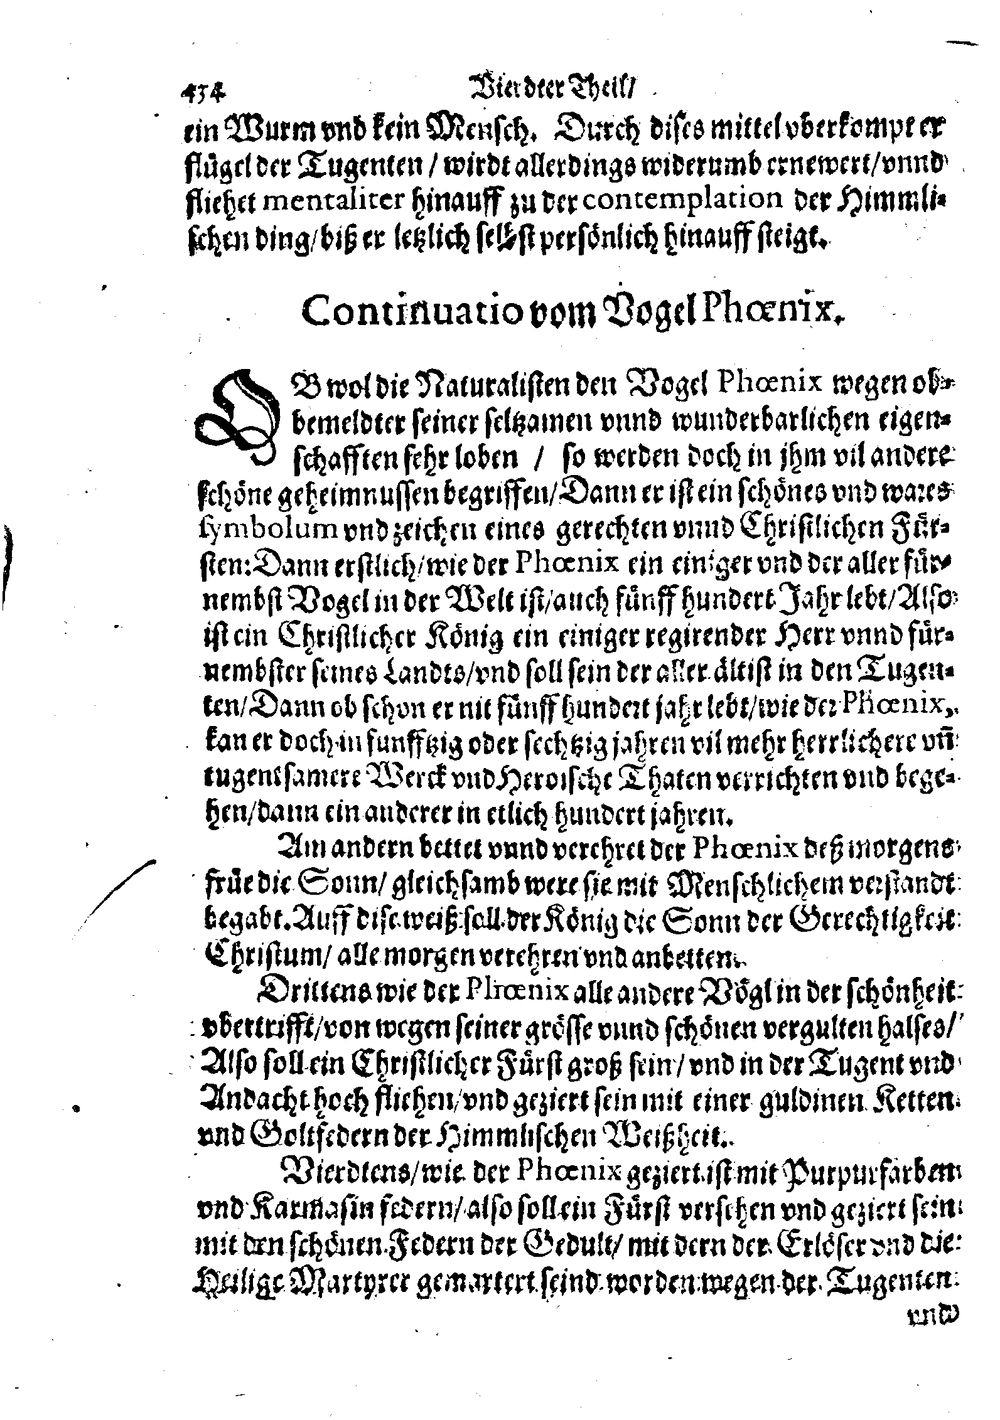 434 Vierdter Theil/
ein Wurm vnd kein Mensch. Durch dises mittel vberkompt er
flügel der Tugenten / wirdt allerdings widerumb ernewert/vnnd
fliehet mentaliter hinauff zu der contemplation der Himmli-
schen ding/biß er letzlich selbst persönlich hinauff steigt.
Continuatio vom Vogel Phœnix.
OB wol die Naturalisten den Vogel Phœnix wegen ob-
bemeldter seiner seltzamen vnnd wunderbarlichen eigen-
schafften sehr loben / so werden doch in jhm vil andere
schöne geheimnussen begriffen/Dann er ist ein schönes vnd wares
symbolum vnd zeichen eines gerechten vnnd Christlichen Für-
sten: Dann erstlich/wie der Phœnix ein einiger vnd der aller für-
nembst Vogel in der Welt ist/auch fünff hundert Jahr lebt/Also
ist ein Christlicher König ein einiger regirender Herr vnnd für-
nembster seines Landts/vnd soll sein der aller ältist in den Tugen-
ten/Dann ob schon er nit fünff hundert jahr lebt/wie der Phœnix,
kan er doch in funfftzig oder sechtzig jahren vil mehr herrlichere vñ
tugentsamere Werck vnd Heroische Thaten verrichten vnd bege-
hen/dann ein anderer in etlich hundert jahren.
Am andern bettet vnnd verehret der Phœnix deß morgens
früe die Sonn/ gleichsamb were sie mit Menschlichem verstandt
begabt. Auff dise weiß soll der König die Sonn der Gerechtigkeit
Christum/ alle morgen verehren vnd anbetten.
Drittens wie der Phœnix alle andere Vögl in der schönheit
vbertrifft/von wegen seiner grösse vnnd schönen vergulten halses/
Also soll ein Christlicher Fürst groß sein/ vnd in der Tugent vnd
Andacht hoch fliehen/vnd geziert sein mit einer guldinen Ketten
vnd Goltfedern der Himmlischen Weißheit.
Vierdtens/wie der Phœnix geziert ist mit Purpurfarben
vnd Karmasin federn/also soll ein Fürst versehen vnd geziert sein
mit den schönen Federn der Gedult/ mit dern der Erlöser vnd die
Heilige Martyrer gemartert seind worden wegen der Tugenten
vnd